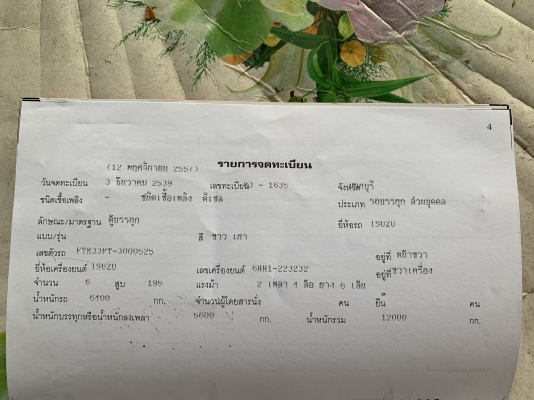 4
(12 พฤศจิกายน 2557) รายการจดทะเบียน
วันจดทะเบียน 3 ธันวาคม 2539 เลขทะเบียน - 1635 จังหวัด
ชนิดเชื้อเพลิง - ชนิดเชื้อเพลิง ดีเซล ประเภท รถบรรทุก ส่วนบุคคล
ลักษณะ/มาตรฐาน ตู้บรรทุก ยี่ห้อรถ ISUZU
แบบ/รุ่น สี ขาว เทา
เลขตัวรถ FTR33PT-3000525 อยู่ที่ หน้าขวา
ยี่ห้อเครื่องยนต์ ISUZU เลขเครื่องยนต์ 6HH1-223232 อยู่ที่ ขวาเครื่อง
จำนวน 6 สูบ 195 แรงม้า 2 เพลา 4 ล้อ ยาง 6 เส้น
น้ำหนักรถ 6400 กก. จำนวนผู้โดยสารนั่ง คน ยืน คน
น้ำหนักบรรทุกหรือน้ำหนักลงเพลา 5600 กก. น้ำหนักรวม 12000 กก.